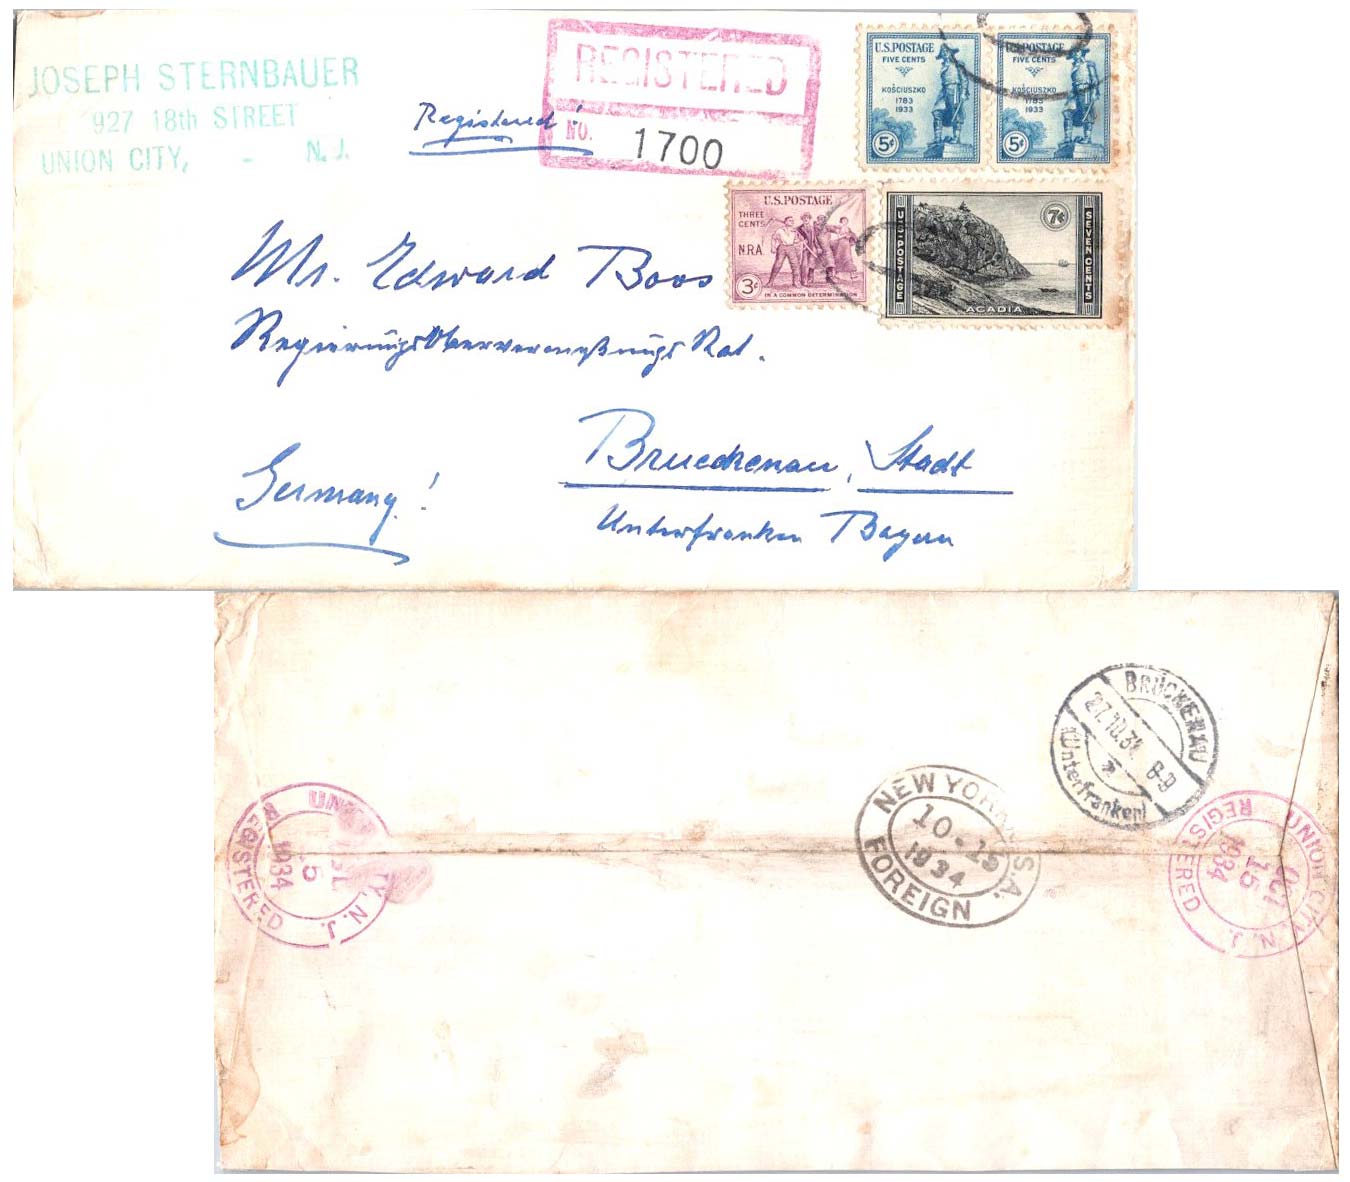 JOSEPH STERNBAUER
927 18th STREET
UNION CITY, - N. J.
Registered!
REGISTERED
NO. 1700
U.S. POSTAGE
FIVE CENTS
KOŚCIUSZKO
1783
1933
5¢
U.S. POSTAGE
FIVE CENTS
KOŚCIUSZKO
1783
1933
5¢
U.S. POSTAGE
THREE CENTS
N.R.A.
3¢
IN A COMMON DETERMINATION
U·S·POSTAGE
7¢
SEVEN CENTS
ACADIA
Mr. Edward Boos
RegierungsObervermeßungs Rat.
Brueckenau, Stadt
Germany!
Unterfranken Bayern
BRÜCKENAU
27.10.34. 8-9
(Unterfranken)
NEW YORK, U.S.A.
10-15
1934
FOREIGN
UNION CITY, N. J.
OCT
15
1934
REGISTERED
UNION CITY, N. J.
OCT
15
1934
REGISTERED